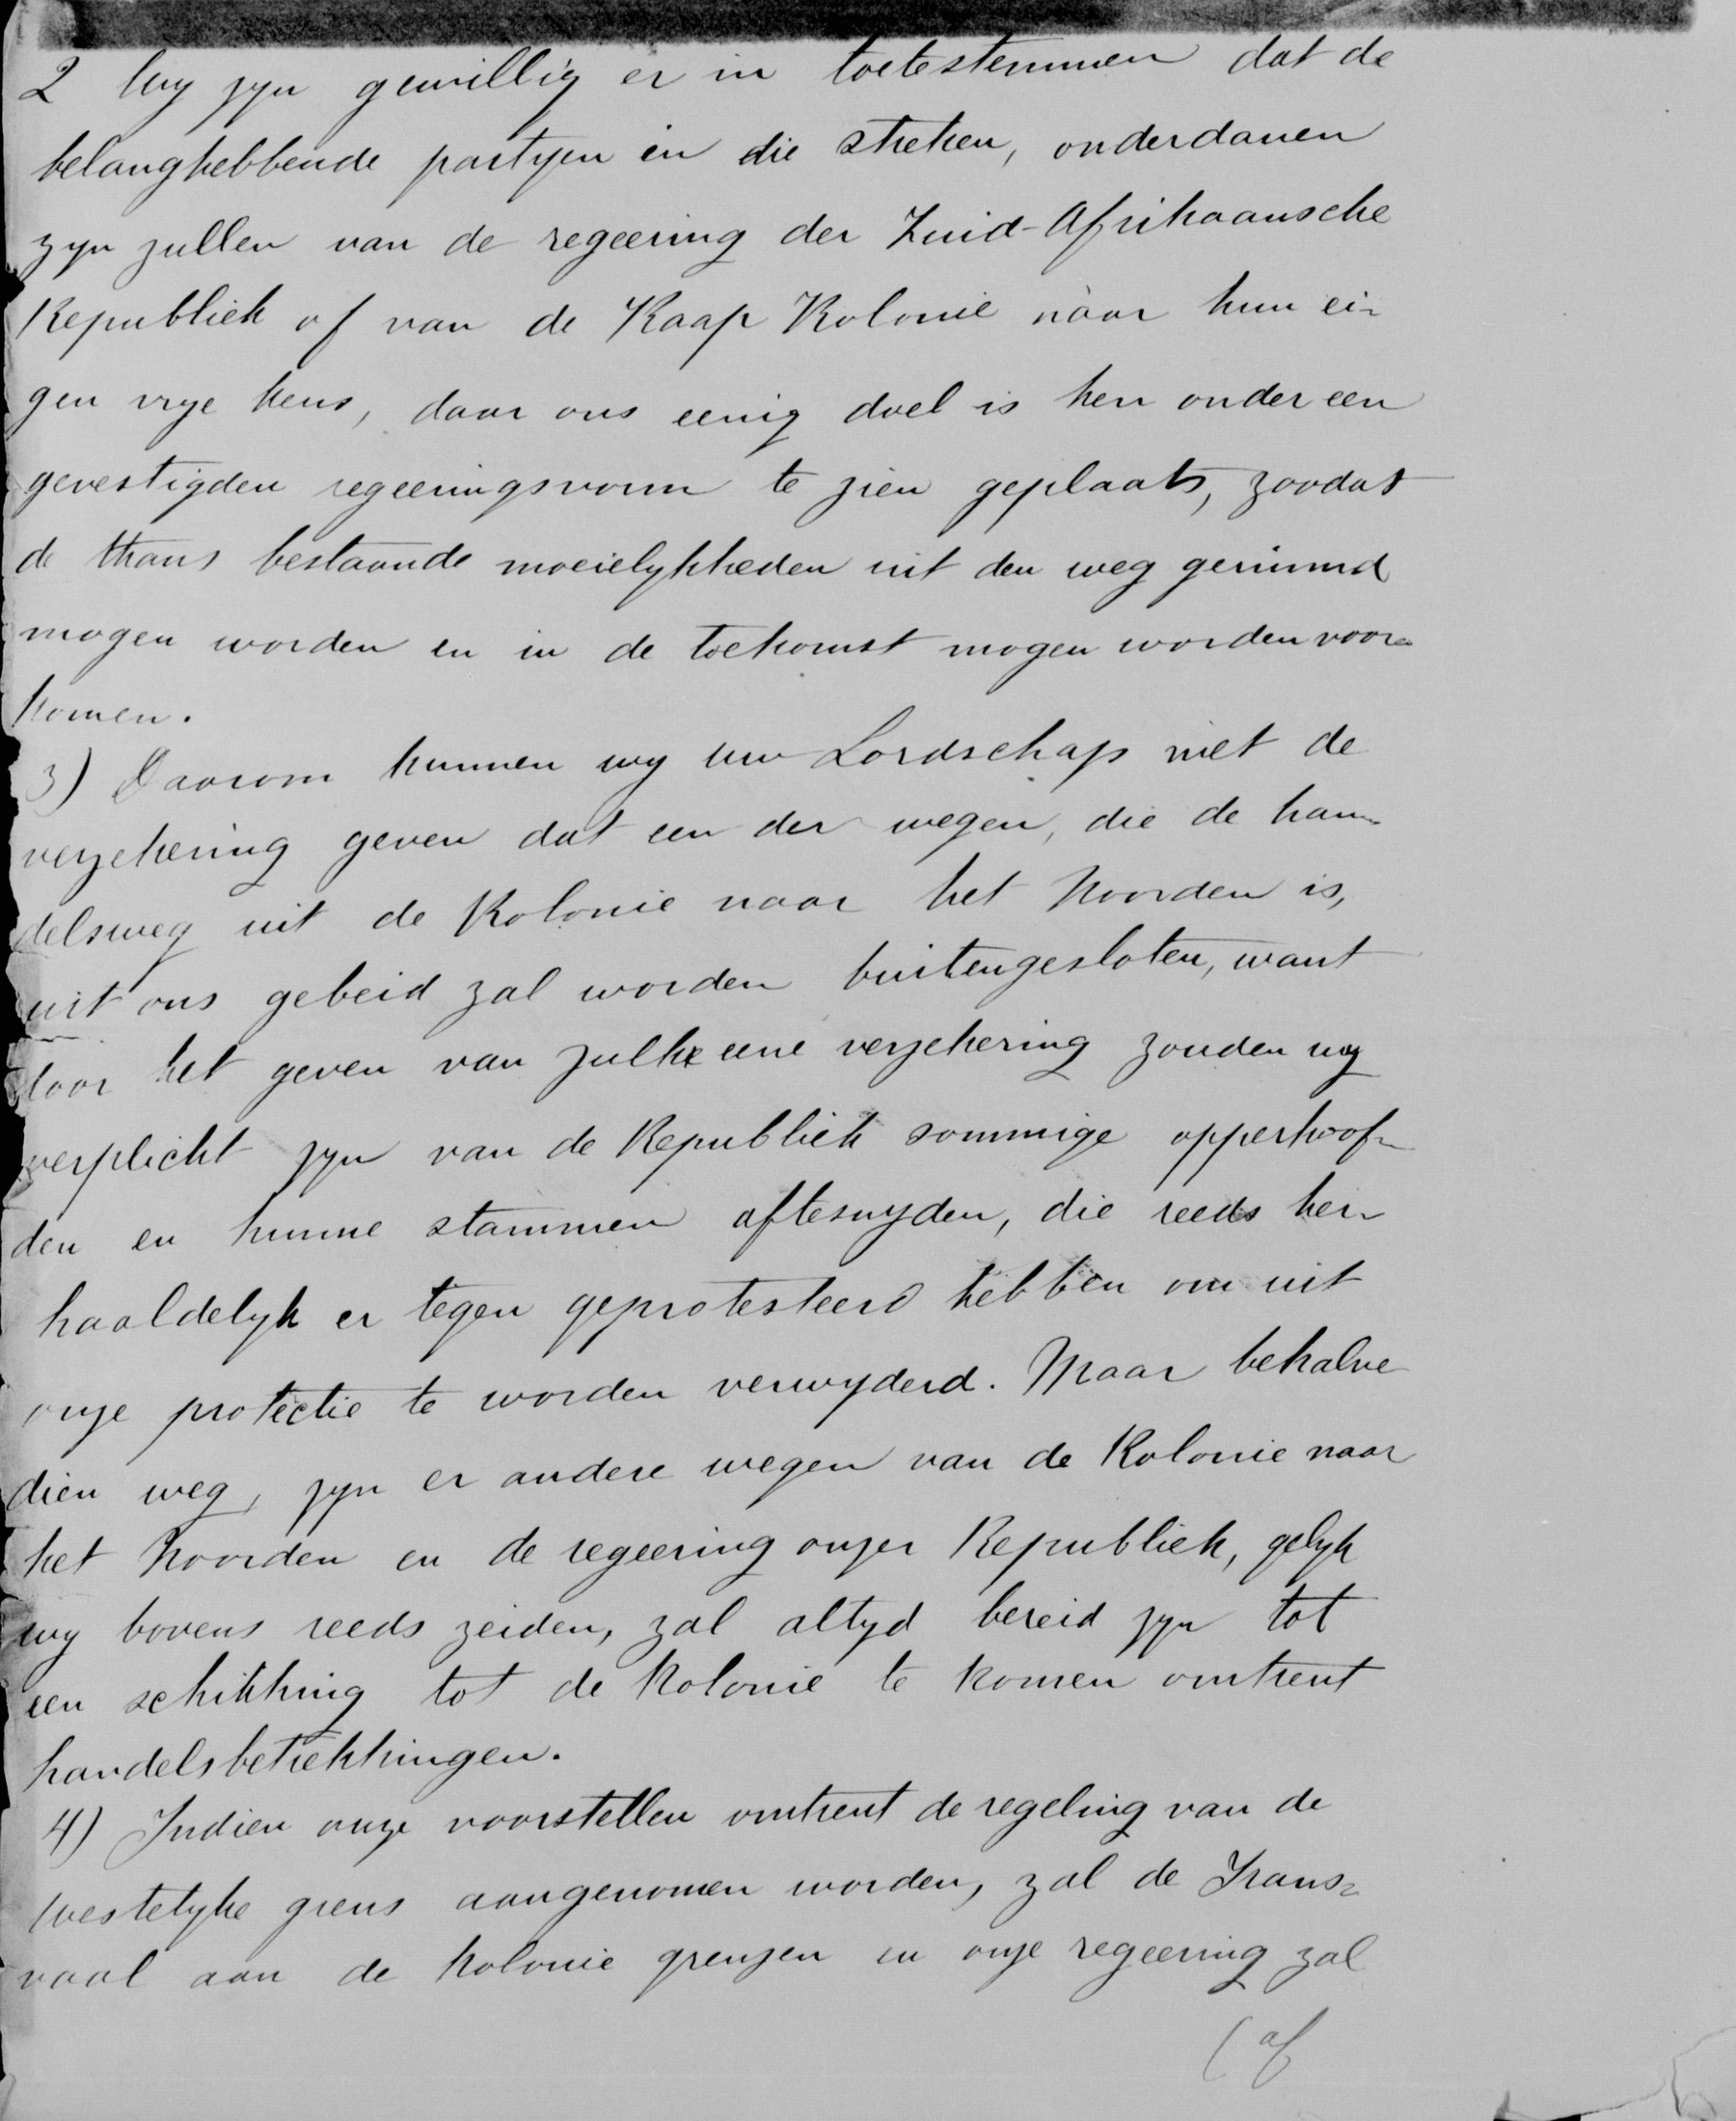 2 Wy zyn gewillig er in toetestemmen dat de
belanghebbende partyen in die streken, onderdanen
zyn zullen van de regeering der Zuid-Afrikaansche
Republiek of van de Kaap Kolonie naar hun ei-
gen vrye keus, daar ons eenig doel is hen onder een
gevestigden regeeringsvorm te zien geplaats, zoodat
de thans bestaande moeielykheden uit den weg geruimd
mogen worden en in de toekomst mogen worden voor-
komen.
3) Daarom kunnen wy uw Lordschap niet de
verzekering geven dat een der wegen, die de han-
delsweg uit de Kolonie naar het Noorden is,
uit ons gebeid zal worden buitengesloten, want
door het geven van zulke eene verzekering zouden wy
verplicht zyn van de Republiek sommige opperhoof-
den en hunne stammen aftesnyden, die reeds her-
haaldelyk er tegen geprotesteerd hebben om uit
onze protectie te worden verwyderd. Maar behalve
dien weg, zyn er andere wegen van de Kolonie naar
het Noorden en de regeering onzer Republiek, gelyk
wy bovens reeds zeiden, zal altyd bereid zyn tot
een schikking tot de Kolonie te komen omtrent
handelsbetrekkingen.
4) Indien onze voorstellen omtrent de regeling van de
westelyke grens aangenomen worden, zal de Trans=
vaal aan de Kolonie grenzen en onze regeering zal
(of